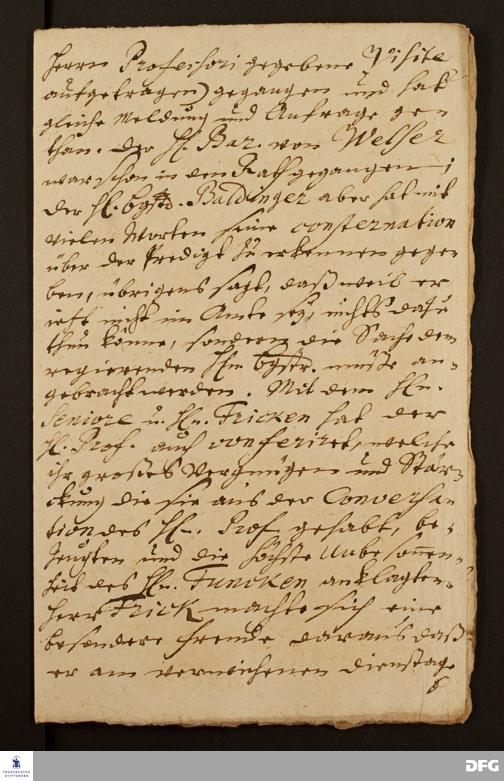 Herrn Professori gegebene Visite
aufgetragen) gegangen und hat
gleiche Meldung und Anfrage ge-
than. Der H. Bar. von Welser
war schon in den Rath gegangen;
der H. bgstr. Baldinger aber hat mit
vielen Worten seine consternation
über der Predigt zu erkennen gege-
ben, übrigens sagt, daß weil er
ietzt nicht im Amte sey, nichts dazu
thun könne, sondern die Sache dem
regierenden Hn. bgstr. müße an-
gebracht werden. Mit dem Hn.
Seniore u. Hn. Fricken hat der
H. Prof. auch conferiret, welche
ihr großes Vergnügen und Stär-
ckung die sie aus der Conversa-
tion des Hn. Prof. gehabt, be-
zeugten und die höchste Unbesonnen-
heit des Hn. Funcken anklagten.
Herr Frick machte sich eine
besondere Freude daraus daß
er am verwichenen Dienstage
FRANCKESCHE STIFTUNGEN
DFG